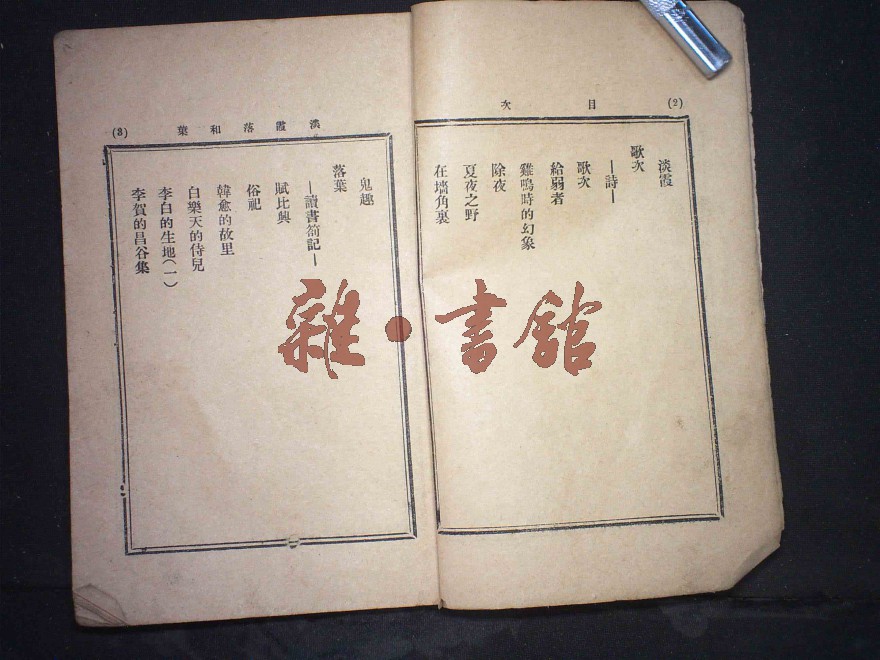 (2)
目次
淡霞
歌次
—詩—
歌次
給弱者
雞鳴時的幻象
除夜
夏夜之野
在墻角裏
淡霞落和葉
(3)
鬼趣
落葉
—讀書箚記—
賦比興
俗祀
韓愈的故里
白樂天的侍兒
李白的生地(一)
李賀的昌谷集
雜·書館